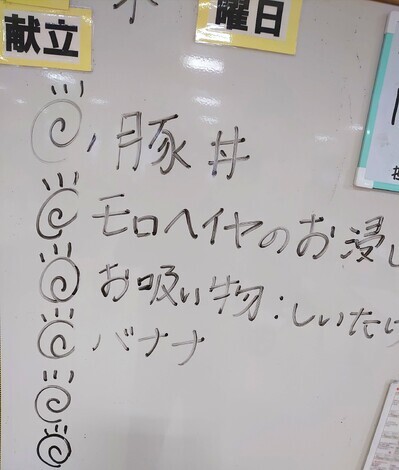 献立
曜日
豚丼
モロヘイヤのお浸し
お吸い物:しいたけ
バナナ